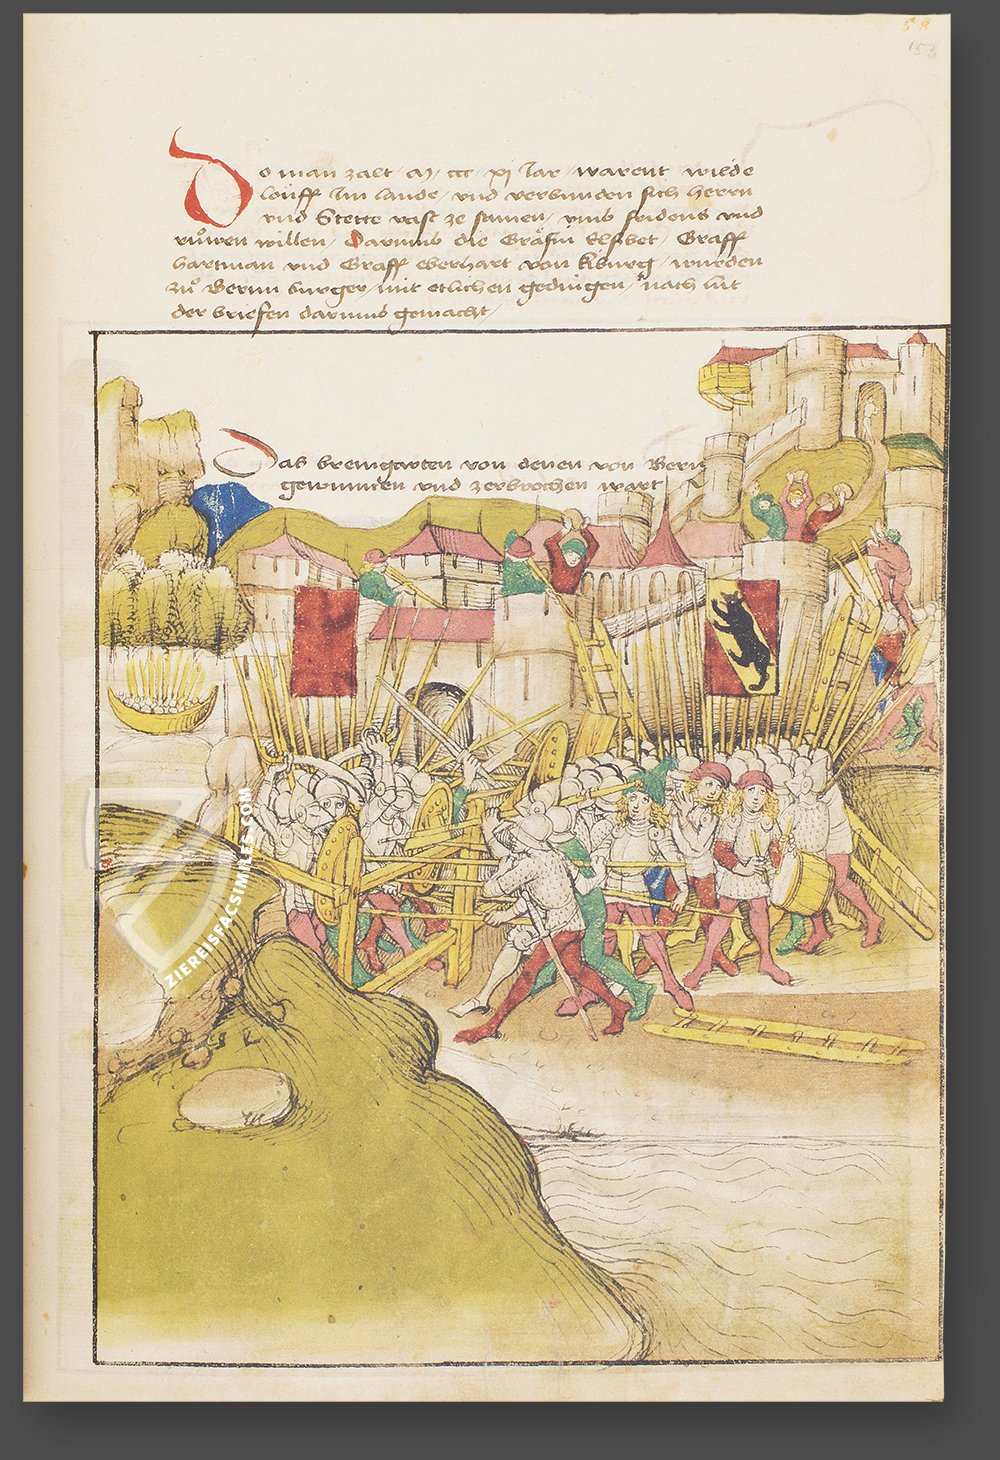 58
153
Do man zalt · M · ccc · xj Jar / warent wilde
löüff Im lande / vnd verbunden sich herrn
vnd Stette vast ze samen / vmb fridens vnd
růwen willen / Darumb die Gräfin Elsbet / Graff
hartman vnd Graff eberhart von kiburg / wurden
zů Bernn burger / mit etlichen gedingen / nach lut
der briefen darumb gemacht /
Das bremgarten von denen von Bern
gewunnen vnd zerbrochen wart
ZIEREISFACSIMILES.COM